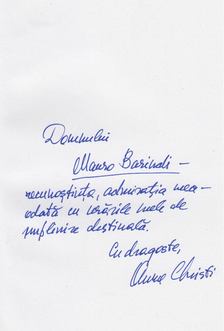 Domnului
Mauro Barindi –
recunoștința, admirația mea
odată cu urările mele de
împlinire destinală.
Cu dragoste,
Anna Christi